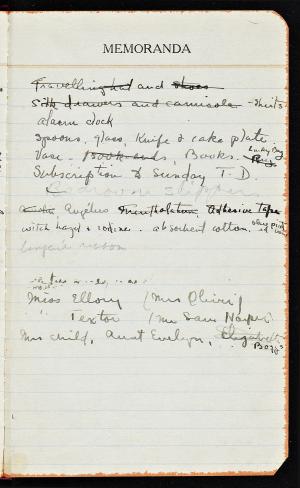 MEMORANDA
Travelling hat and shoes
Silk drawers and camisole - shirts
alarm clock
Spoons, glass, Knife & cake plate
Vase. Book ends, Books. Lucky Dog
Subscription to Sunday T-D.
Bedroom slippers
Angélus Mentholatum, Adhesive tape
witch hazel & iodine. absorbent cotton.
Miss Ellory (Mrs Cheri)
" Textor (Mr Sam Harper)
Mrs Child, Aunt Evelyn, Elizabeth
Boggs